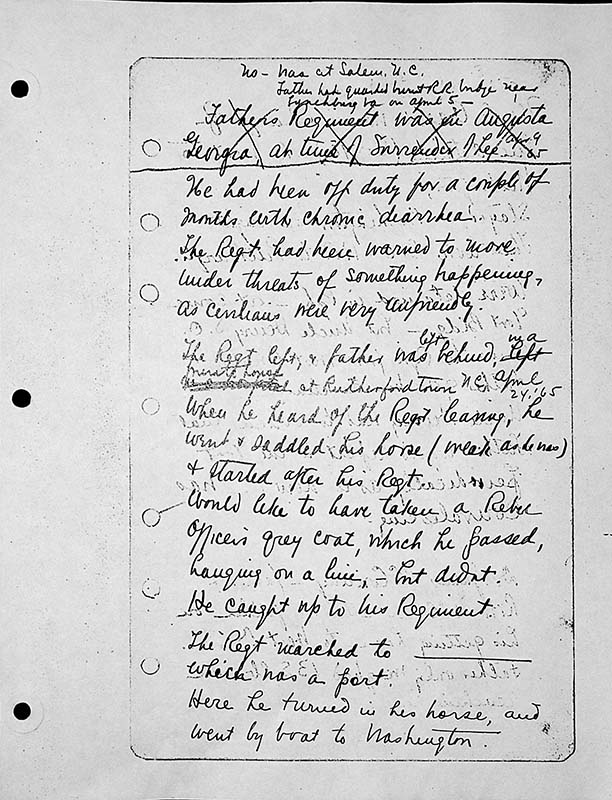 No - was at Salem, N.C.
Father had guarded burnt R.R. bridge near
Lynchburg Va on April 5 -
Father's Regiment was in Augusta
Georgia, at time of Surrender of Lee Apr 9
65
He had been off duty for a couple of
months with chronic diarrhea.
The Regt had been warned to move
under threats of something happening,
as civilians were very unfriendly.
The Regt left, & father was left behind, Left in a
private house
at Rutherfordtown N.C. April
24, '65
When he heard of the Regt leaving, he
went & saddled his horse (weak as he was)
& started after his Regt.
Would like to have taken a Rebel
Officers grey coat, which he passed,
hanging on a line, - but didnt.
He caught up to his Regiment
The Regt marched to ________
which was a port.
Here he turned in his horse, and
went by boat to Washington.